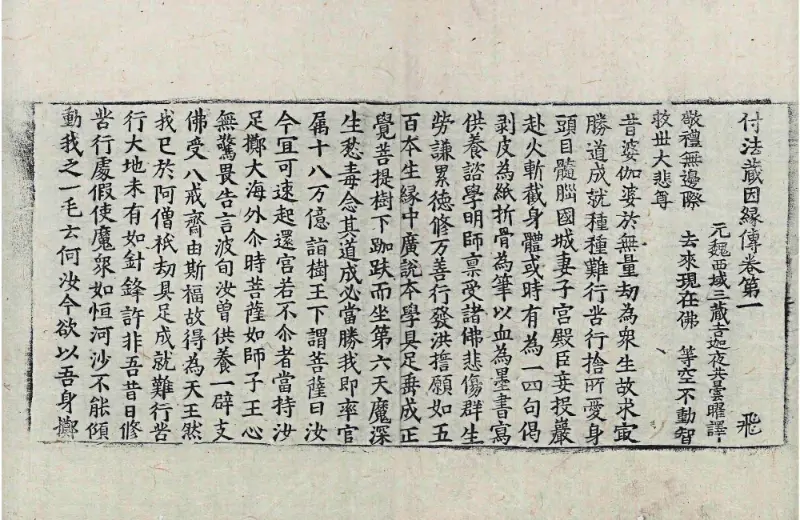 付法藏因縁傳卷第一 飛
元魏西域三藏吉迦夜共曇曜譯
敬禮無邊際 去來現在佛 等空不動智
救世大悲尊
昔婆伽婆於無量劫為衆生故求㝡
勝道成就種種難行苦行捨所愛身
頭目髓腦國城妻子宮殿臣妾投巖
赴火斬截身體或時有為一四句偈
剥皮為紙折骨為筆以血為墨書寫
供養諮學明師禀受諸佛悲傷群生
勞謙累徳修万善行發洪擔願如五
百本生縁中廣説本學具足垂成正
覺菩提樹下跏趺而坐第六天魔深
生愁毒念其道成必當勝我即率官
属十八万億詣樹王下謂菩薩曰汝
今宜可速起還宮若不尒者當持汝
足擲大海外尒時菩薩如師子王心
無驚畏告言波旬汝曽供養一辟支
佛受八戒齋由斯福故得為天王然
我已於阿僧祇劫具足成就難行苦
行大地未有如針鋒許非吾昔日修
苦行處假使魔衆如恒河沙不能傾
動我之一毛云何汝今欲以吾身擲